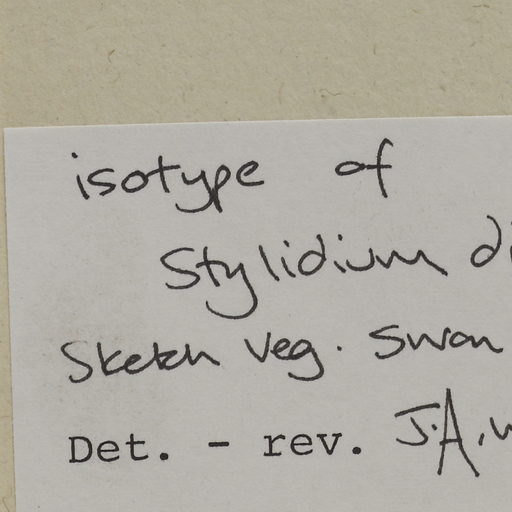 isotype of
Stylidium di
Sketch Veg. Swan
Det. - rev. J.A.W